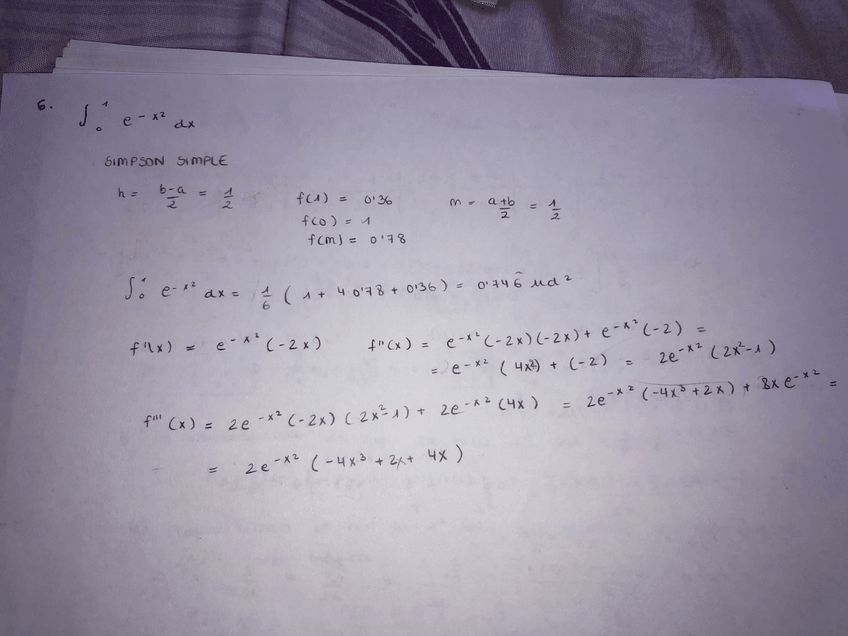 6. ∫₀¹ e^{-x²} dx
SIMPSON SIMPLE
h = \frac{b-a}{2} = \frac{1}{2} f(1) = 0'36 m = \frac{a+b}{2} = \frac{1}{2}
f(0) = 1
f(m) = 0'78
∫₀¹ e^{-x²} dx = \frac{1}{6} ( 1 + 4·0'78 + 0'36) = 0'746̂ ud²
f'(x) = e^{-x²} (-2x) f''(x) = e^{-x²} (-2x)(-2x) + e^{-x²} (-2) =
= e^{-x²} (4x²) + (-2) = 2e^{-x²} (2x²-1)
f'''(x) = 2e^{-x²} (-2x) (2x²-1) + 2e^{-x²} (4x) = 2e^{-x²} (-4x³ + 2x) + 8x e^{-x²} =
= 2e^{-x²} (-4x³ + 2x + 4x)